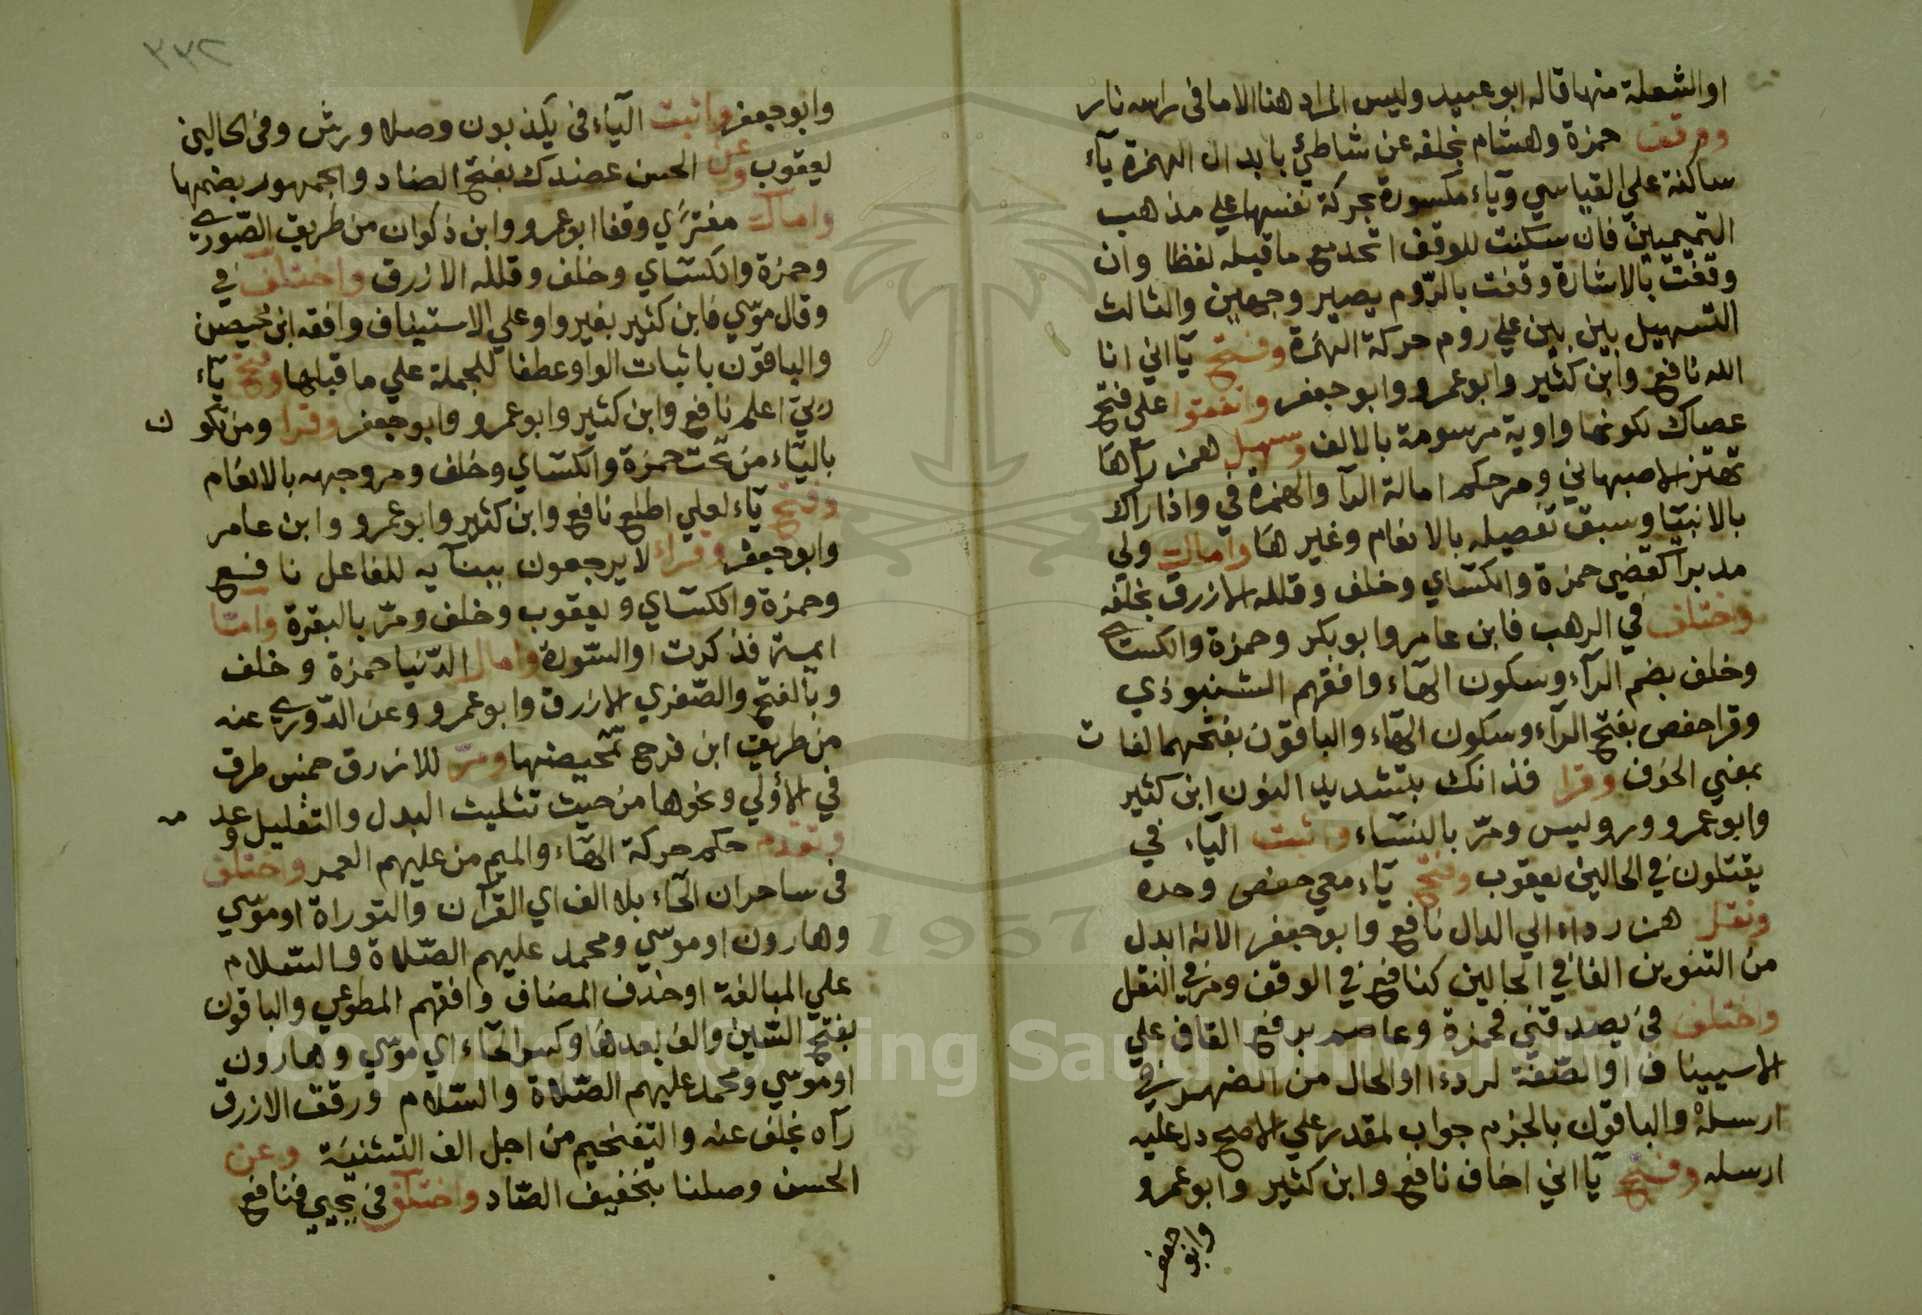 او الشعلة منها قاله ابو عبيد وليس المراد هنا الا ما في راسه نار
ووقف حمزة وهشام بخلفه عن شاطئ بابدال الهمزة يآء
ساكنة علي القياسي ويآء مكسورة بحركة نفسها علي مذهب
التميميين فان سكنت للوقف اتحد مع ما قبله لفظا وان
وقفت بالاشارة وقفت بالروم يصير وجهين والثالث
التسهيل بين بين علي روم حركة الهمزة وفتح يآ اني انا
الله نافع وابن كثير وابو عمرو وابو جعفر واتفقوا علي فتح
عصاك لكونها واوية مرسومة بالالف وسهل همز رآها
تهتز الاصبهاني ومر حكم امالة الرآ والهمزة في واذا رآك
بالانبيا وسبق تفصيله بالانعام وغيرها وامالت ولي
مدبرا كقضي حمزة والكسآي وخلف وقلله الازرق بخلفه
واختلف في الرهب فابن عامر وابو بكر وحمزة والكسآي
وخلف بضم الرآء وسكون الهآء وافقهم الشنبوذي
وقرا حفص بفتح الرآء وسكون الهآء والباقون بفتحهما لغات
بمعني الخوف وقرا فذانك بتشديد النون ابن كثير
وابو عمرو ورويس ومر بالنسآء واثبت اليآء في
يقتلون في الحالين يعقوب وفتح يآء معي حفص وحده
ونقل همز ردءا الي الدال نافع وابو جعفر الا انه ابدل
من التنوين الفا في الحالين كنافع في الوقف ومر في النقل
واختلف في يصدقني فحمزة وعاصم برفع القاف علي
الاسيناف او الصفة لردءا او الحال من الضمير في
ارسله والباقون بالجزم جواب لمقدر علي الاصح دل عليه
ارسله وفتح يآ اني اخاف نافع وابن كثير وابو عمرو
وابو جعفر
٣٣٢
وابو جعفر واثبت اليآء في يكذبون وصلا ورش وفي الحالين
يعقوب وعن الحسن عضدك بفتح الضاد والجمهور بضمها
وامالت مفتري وقفا ابو عمرو وابن ذكوان من طريق الصوري
وحمزة والكسآي وخلف وقلله الازرق واختلف في
وقال موسي فابن كثير بغير واو علي الاستيناف وافقه ابن محيصن
والباقون باثبات الواو عطفا للجملة علي ما قبلها وفتح يآء
ربي اعلم نافع وابن كثير وابو عمرو وابو جعفر وقرا ومن تكون
باليآء من تحت حمزة والكسآي وخلف ومر وجهه بالانعام
وفتح يآء لعلي اطلع نافع وابن كثير وابو عمرو وابن عامر
وابو جعفر وقراء لا يرجعون ببنآيه للفاعل نافع
وحمزة والكسآي ويعقوب وخلف ومر بالبقرة وامآ
ايمة فذكرت او السورة وامال الدنيا حمزة وخلف
وبالفتح والصغري الازرق وابو عمرو وعن الدوري عنه
من طريق ابن فرح تمحيضها ومر للازرق خمس طرق
في الاولي ونحوها من حيث تثليث البدل والتقليل وعدمه
وتقدم حكم حركة الهآء والميم من عليهم العمر واختلف
في ساحران الحآء بلا الف اي القرآن والتوراة او موسي
وهارون او موسي ومحمد عليهم الصلاة والسلام
علي المبالغة او حذف المضاف وافقهم المطوعي والباقون
بفتح السين والف بعدها وكسر الحآء اي موسي وهارون
او موسي ومحمد عليهم الصلاة والسلام ورقق الازرق
رآه بخلف عنه والتفخيم من اجل الف التثنية وعن
الحسن وصلنا بتخفيف الصاد واختلف في يجبي فنافع
Copyright © King Saud University
1957